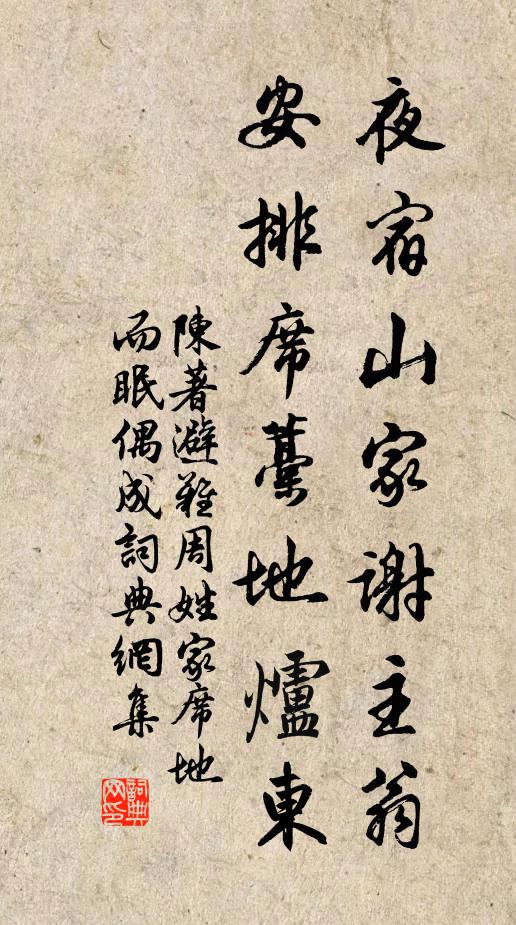 夜宿山家謝主翁
安排席藁地爐東
陳著避難周姓家席地
而眠偶成詞典網集
詞典
网印